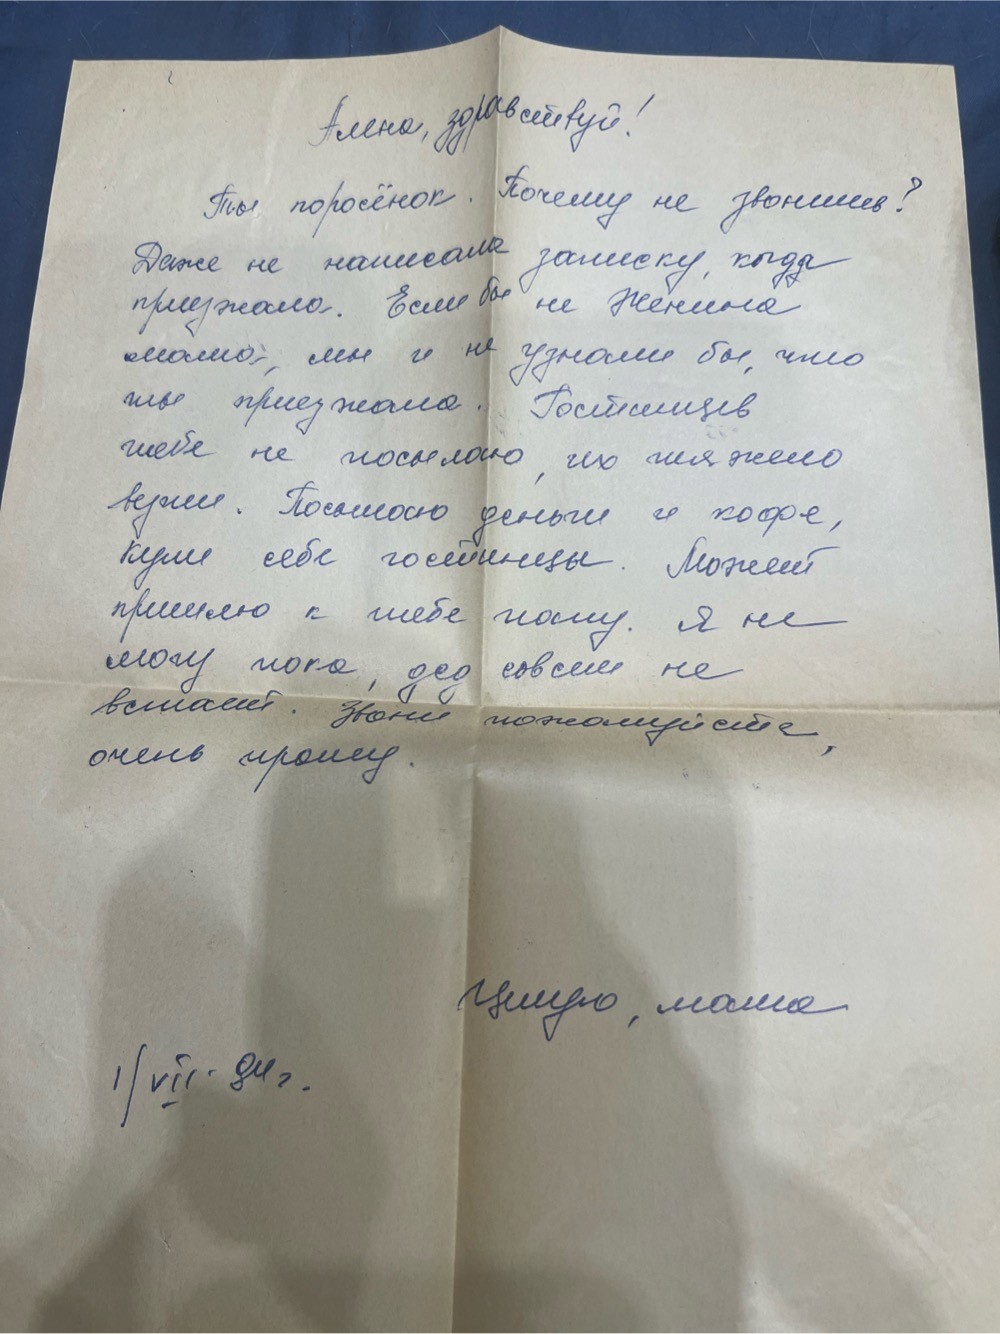 Алена, здравствуй!
Ты поросёнок. Почему не звонишь?
Даже не написала записку, когда
приезжала. Если бы не Женина
мама, мы и не узнали бы, что
ты приезжала. Гостинцев
тебе не посылаю, их тяжело
везти. Посылаю деньги и кофе,
купи себе гостинцы. Может
пришлю к тебе папу. Я не
могу пока, дед совсем не
встаёт. Звони пожалуйста,
очень прошу.
Целую, мама
1/VII-94 г.